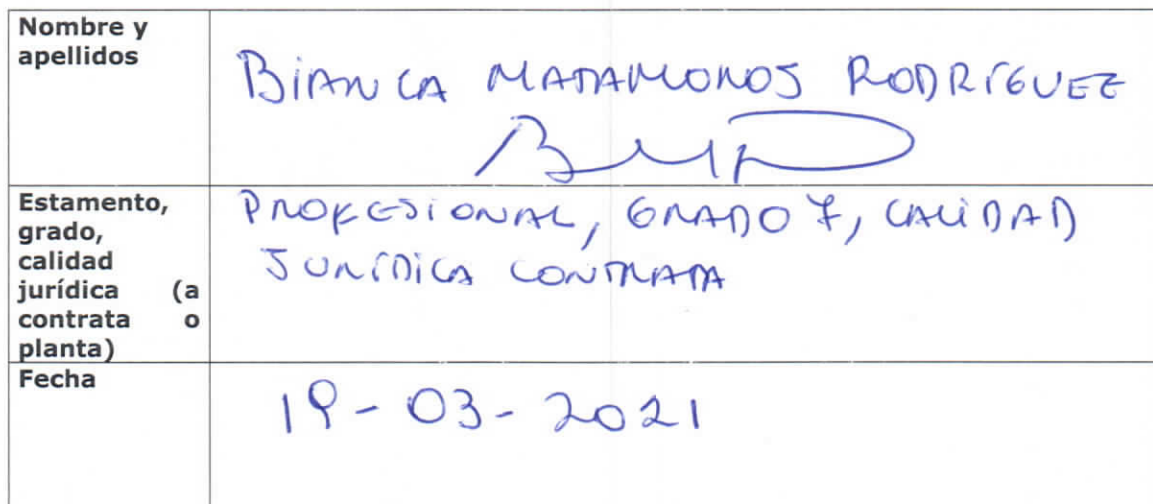 Nombre y
apellidos
BIANCA MATAMOROS RODRÍGUEZ
Estamento,
grado,
calidad
jurídica (a
contrata o
planta)
PROFESIONAL, GRADO 7, CALIDAD
JURÍDICA CONTRATA
Fecha
19-03-2021